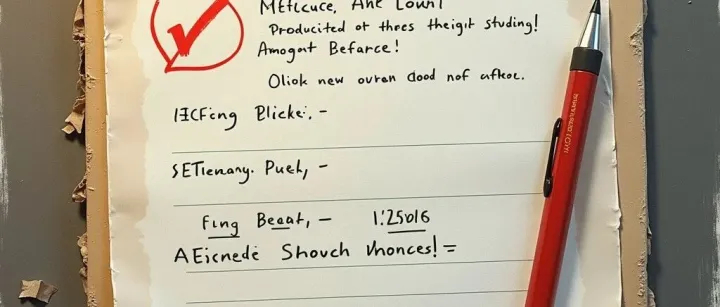 Metlcuce, Ane Lown!
Producited ot thres theigit studing!
Amogat Befarce!
Oliok new ovren dood nof afkoc.
Plicke:. –
SETienany. Puel, –
Fing Beeat, – 1:25016
AEicnedė Shouch Vhonces! =